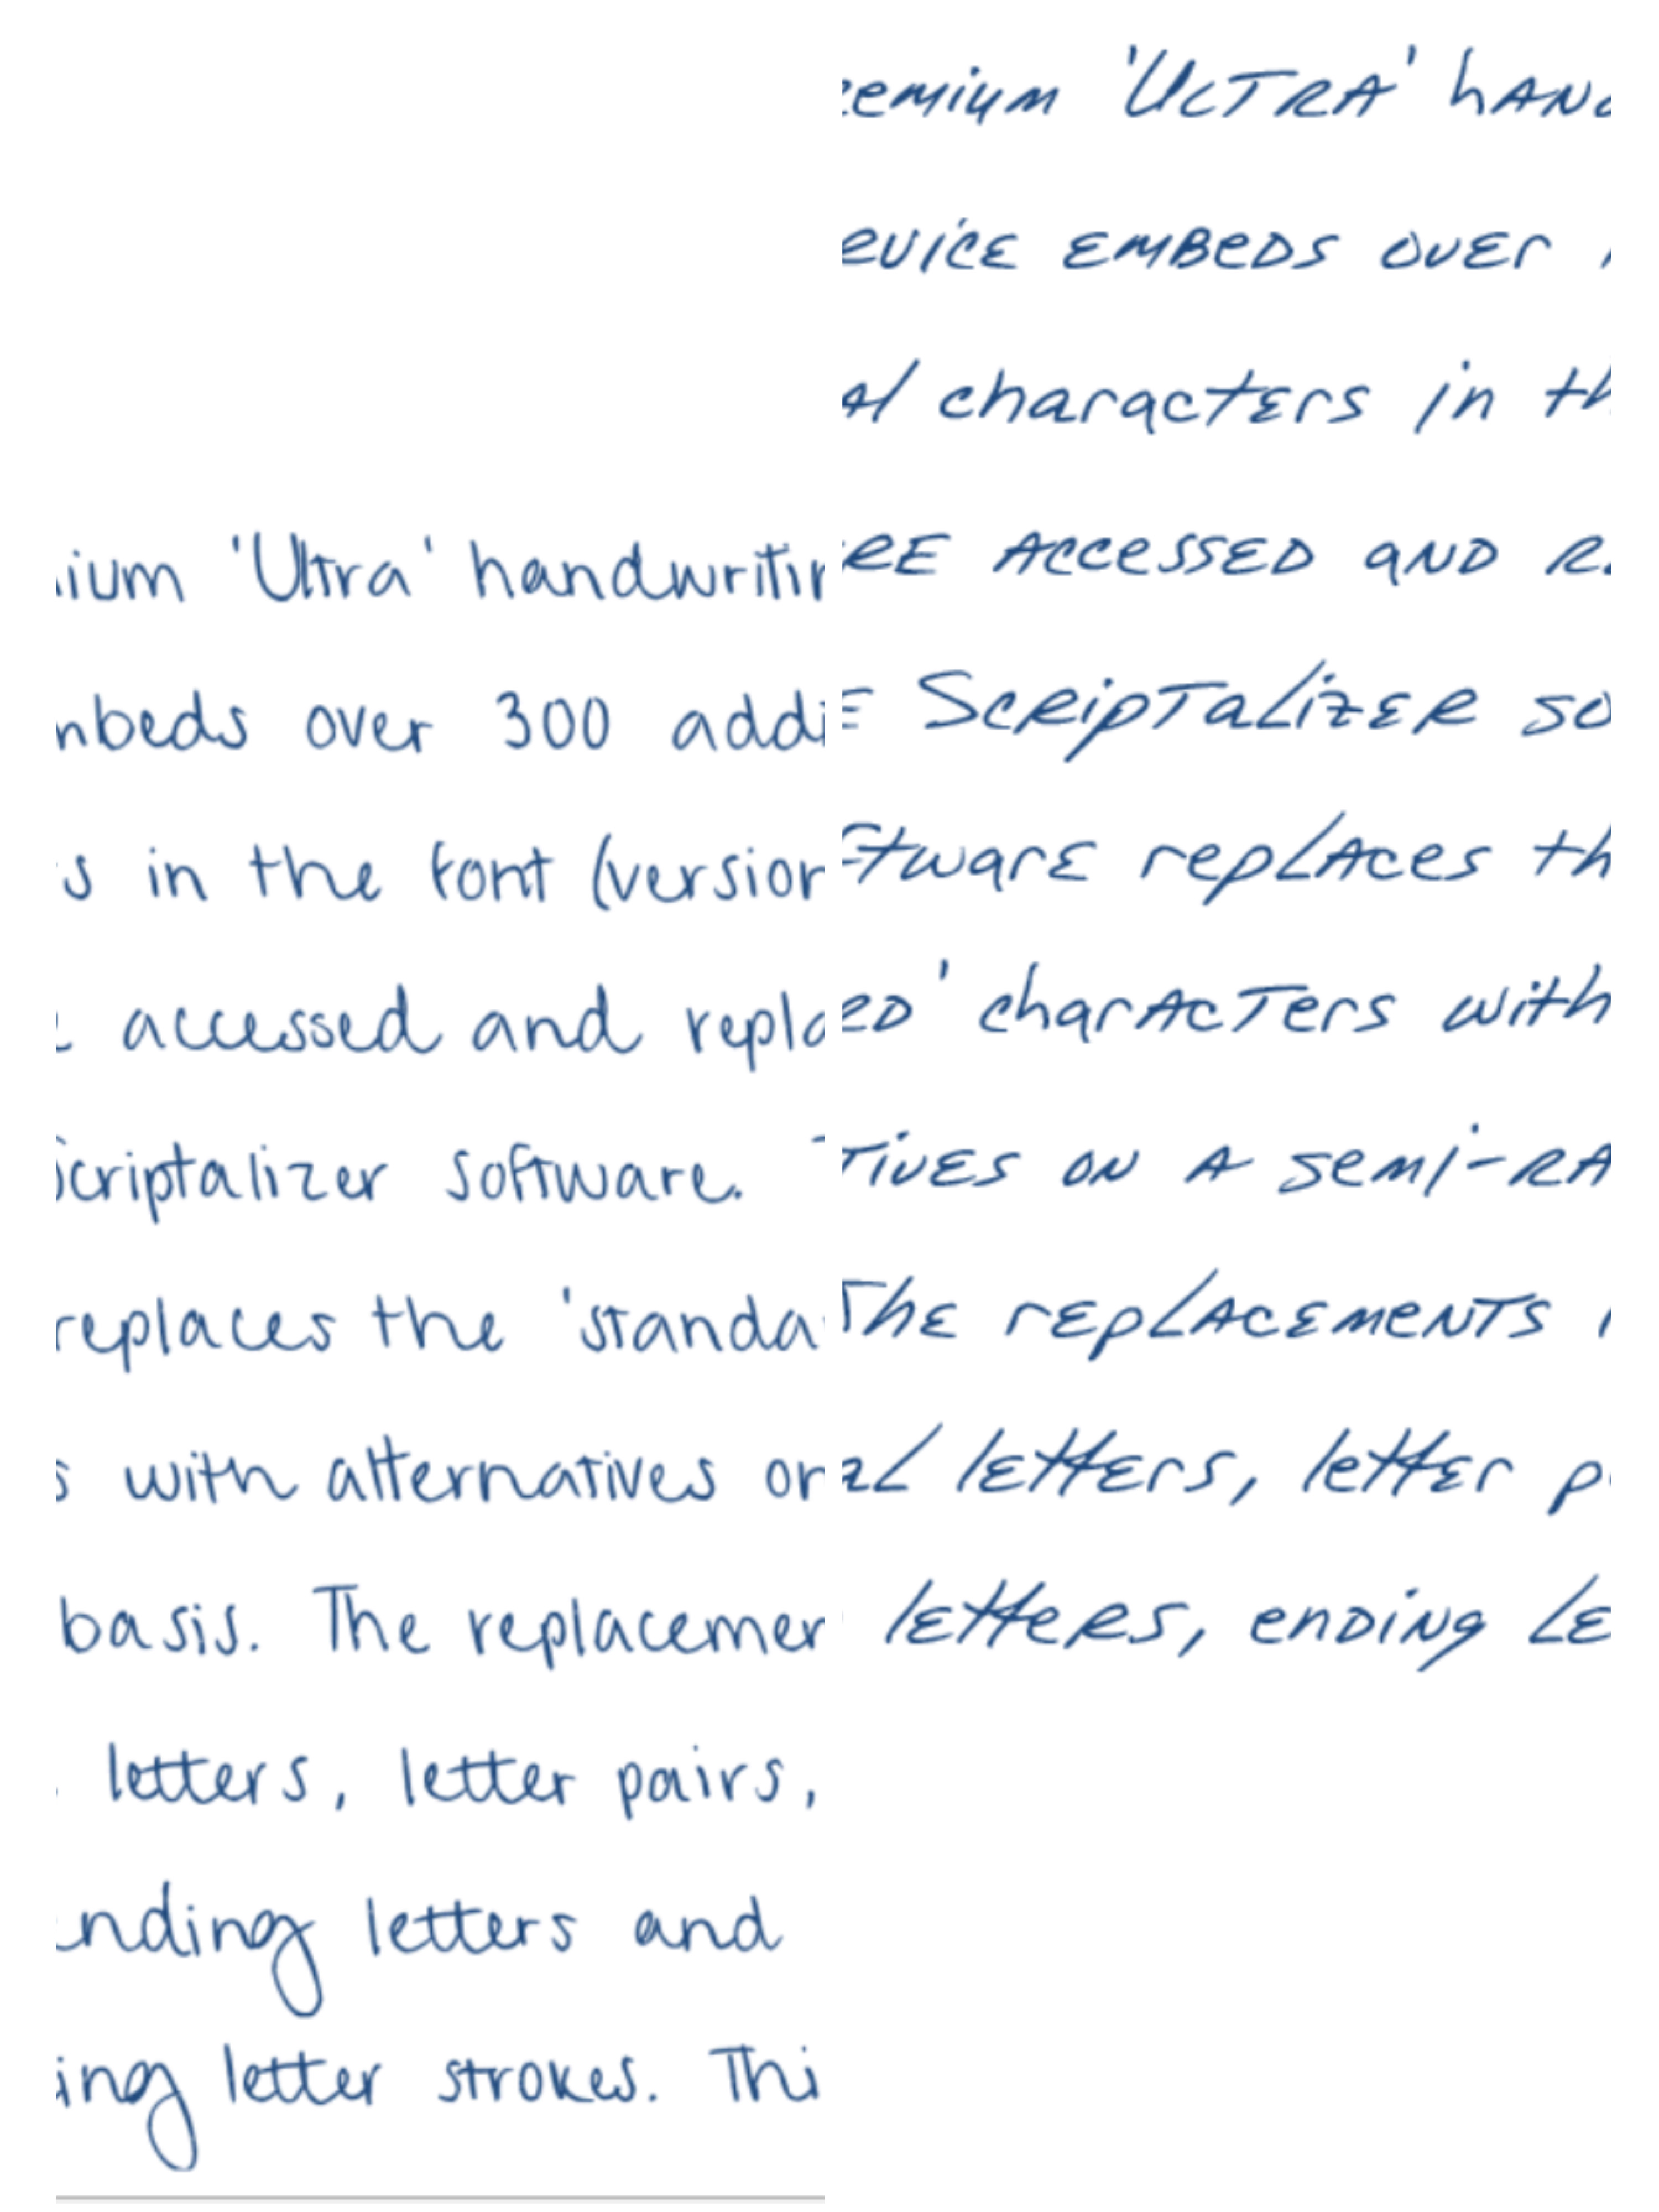 ium 'Ultra' handwritin
nbeds over 300 addi
s in the font (version
accessed and repla
Scriptalizer software.
replaces the 'standa
s with alternatives on
basis. The replacemen
letters, letter pairs,
ending letters and
ing letter strokes. Thi
emium 'ULTRA' hAND
EVICE EMBEDS OVER
Al characters in th
RE ACCESSED AND R
E ScRipTalizER so
ftware replAces th
ED' charAcTers with
TIVES ON A semi-RA
The REPLACEMENTS
al letters, letter p
letteRs, ending LE